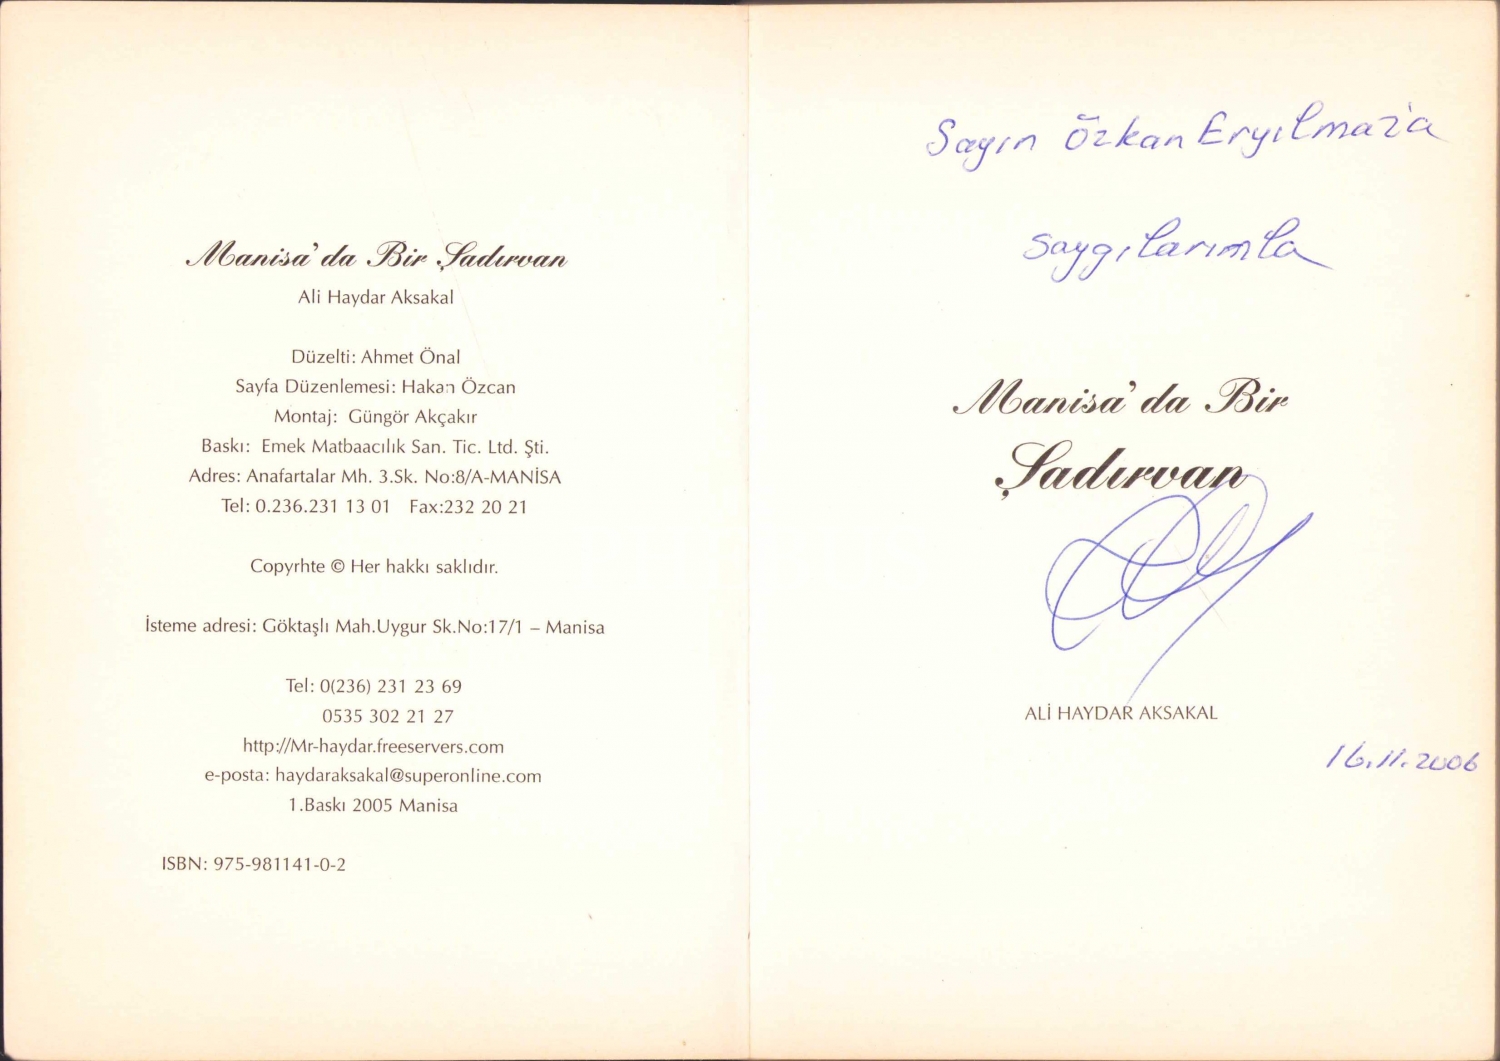 Manisa'da Bir Şadırvan
Ali Haydar Aksakal
Düzelti: Ahmet Önal
Sayfa Düzenlemesi: Hakan Özcan
Montaj: Güngör Akçakır
Baskı: Emek Matbaacılık San. Tic. Ltd. Şti.
Adres: Anafartalar Mh. 3.Sk. No:8/A-MANİSA
Tel: 0.236.231 13 01 Fax:232 20 21
Copyrhte © Her hakkı saklıdır.
İsteme adresi: Göktaşlı Mah.Uygur Sk.No:17/1 – Manisa
Tel: 0(236) 231 23 69
0535 302 21 27
http://Mr-haydar.freeservers.com
e-posta: haydaraksakal@superonline.com
1.Baskı 2005 Manisa
ISBN: 975-981141-0-2
Sayın Özkan Eryılmaz'a
saygılarımla
Manisa'da Bir
Şadırvan
ALİ HAYDAR AKSAKAL
16.11.2006